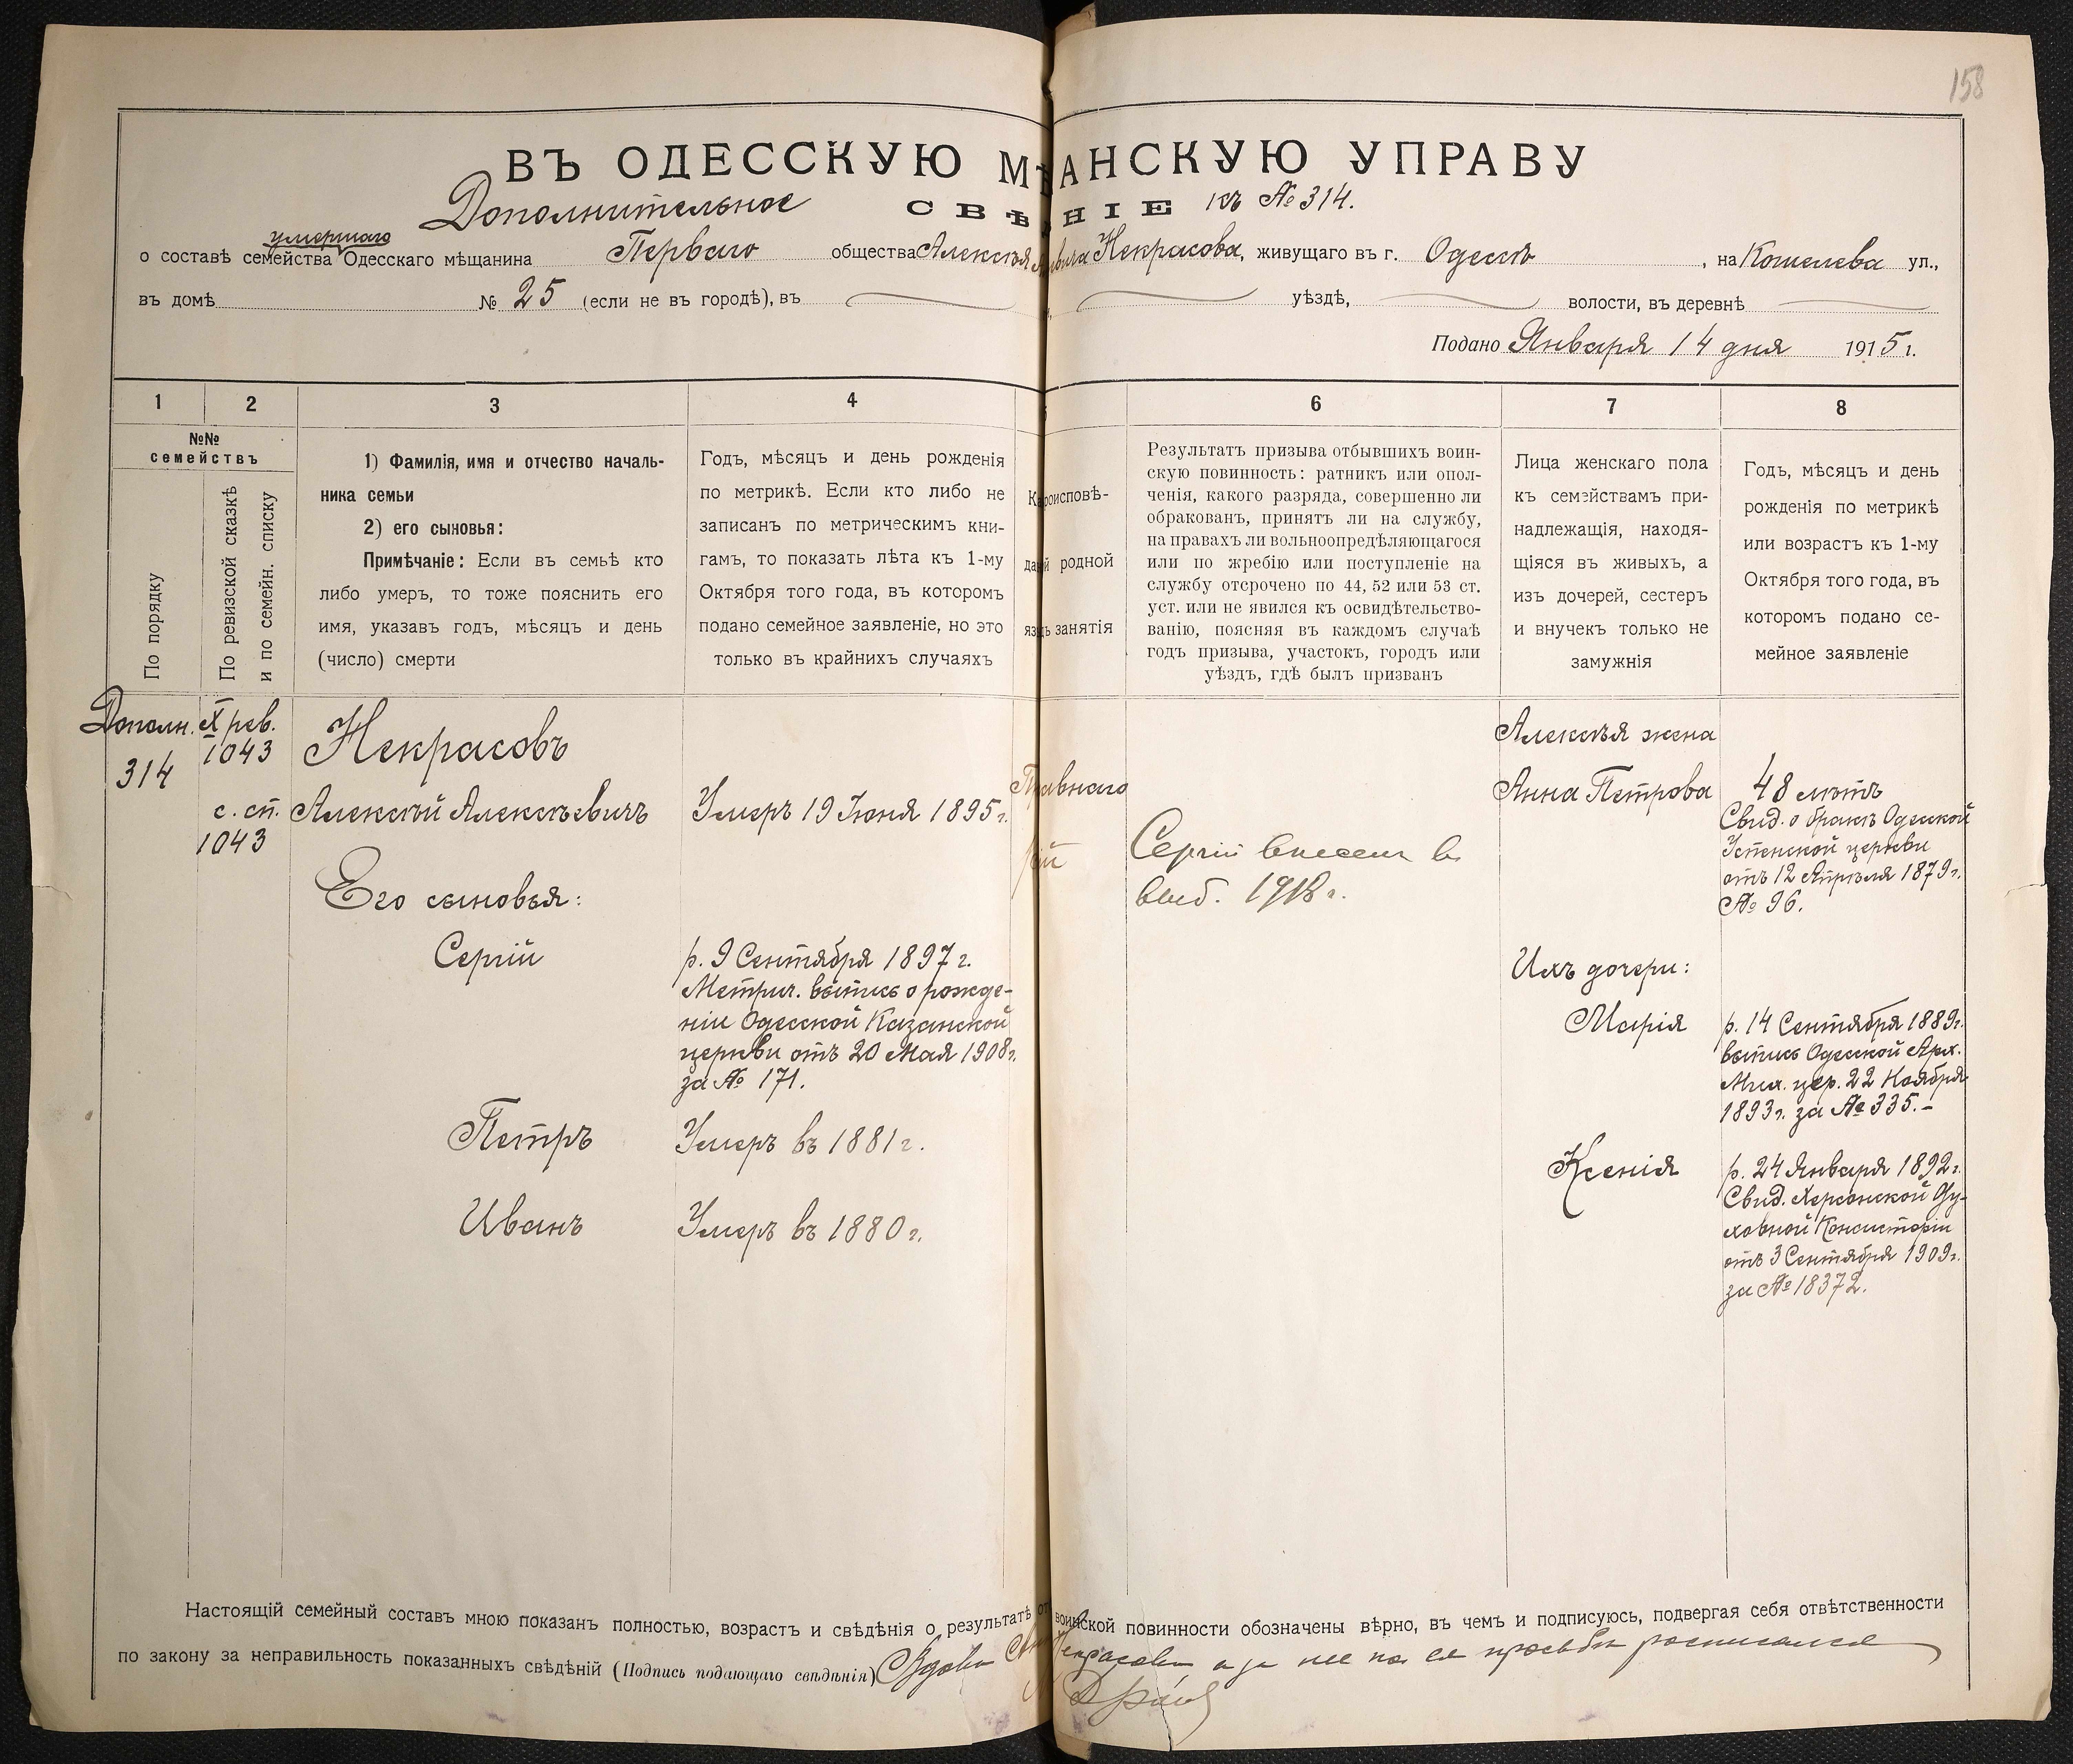 158
ВЪ ОДЕССКУЮ М АНСКУЮ УПРАВУ
Дополнительное СВѢ НІЕ къ № 314.
умершаго
о составѣ семейства Одесскаго мѣщанина Перваго общества Алексѣя Некрасова, живущаго въ г. Одессѣ, на Кошелева ул.,
въ домѣ № 25 (если не въ городѣ), въ уѣздѣ, волости, въ деревнѣ
Подано Января 14 дня 1915 г.
1 2 3 4 6 7 8
№№ семействъ
По порядку
По ревизской сказкѣ
и по семейн. списку
1) Фамилія, имя и отчество началь-
ника семьи
2) его сыновья:
Примѣчаніе: Если въ семьѣ кто
либо умеръ, то тоже пояснить его
имя, указавъ годъ, мѣсяцъ и день
(число) смерти
Годъ, мѣсяцъ и день рожденія
по метрикѣ. Если кто либо не
записанъ по метрическимъ кни-
гамъ, то показать лѣта къ 1-му
Октября того года, въ которомъ
подано семейное заявленіе, но это
только въ крайнихъ случаяхъ
роисповѣ-
родной
занятія
Результатъ призыва отбывшихъ воин-
скую повинность: ратникъ или опол-
ченія, какого разряда, совершенно ли
обракованъ, принятъ ли на службу,
на правахъ ли вольноопредѣляющагося
или по жребію или поступленіе на
службу отсрочено по 44, 52 или 53 ст.
уст. или не явился къ освидѣтельство-
ванію, поясняя въ каждомъ случаѣ
годъ призыва, участокъ, городъ или
уѣздъ, гдѣ былъ призванъ
Лица женскаго пола
къ семействамъ при-
надлежащія, находя-
щіяся въ живыхъ, а
изъ дочерей, сестеръ
и внучекъ только не
замужнія
Годъ, мѣсяцъ и день
рожденія по метрикѣ
или возрастъ къ 1-му
Октября того года, въ
которомъ подано се-
мейное заявленіе
Дополн.
314
X рев.
1043
с. сп.
1043
Некрасовъ
Алексѣй Алексѣевичъ
Умеръ 19 Іюня 1895 г.
Его сыновья:
Сергій
р. 9 Сентября 1897 г.
Метрич. выпись о рожде-
ніи Одесской Казанской
церкви отъ 20 Мая 1908 г.
за № 171.
Петръ
Умеръ въ 1881 г.
Иванъ
Умеръ въ 1880 г.
Сергій внесен в
1918 г.
Алексѣя жена
Анна Петрова
48 лѣтъ
Свид. о бракѣ Одесской
Успенской церкви
отъ 12 Апрѣля 1879 г.
№ 96.
Ихъ дочери:
Марія
р. 14 Сентября 1889 г.
выпись Одесской Арх.
Мих. цер. 22 Ноября
1893 г. за № 335.-
Ксенія
р. 24 Января 1892 г.
Свид. Херсонской Ду-
ховной Консисторіи
отъ 3 Сентября 1909 г.
за № 18372.
Настоящій семейный составъ мною показанъ полностью, возрастъ и свѣдѣнія о результатѣ воинской повинности обозначены вѣрно, въ чемъ и подписуюсь, подвергая себя отвѣтственности
по закону за неправильность показанныхъ свѣдѣній (Подпись подающаго свѣдѣнія) Вдова Некрасова а за нее по ея просьбѣ росписался